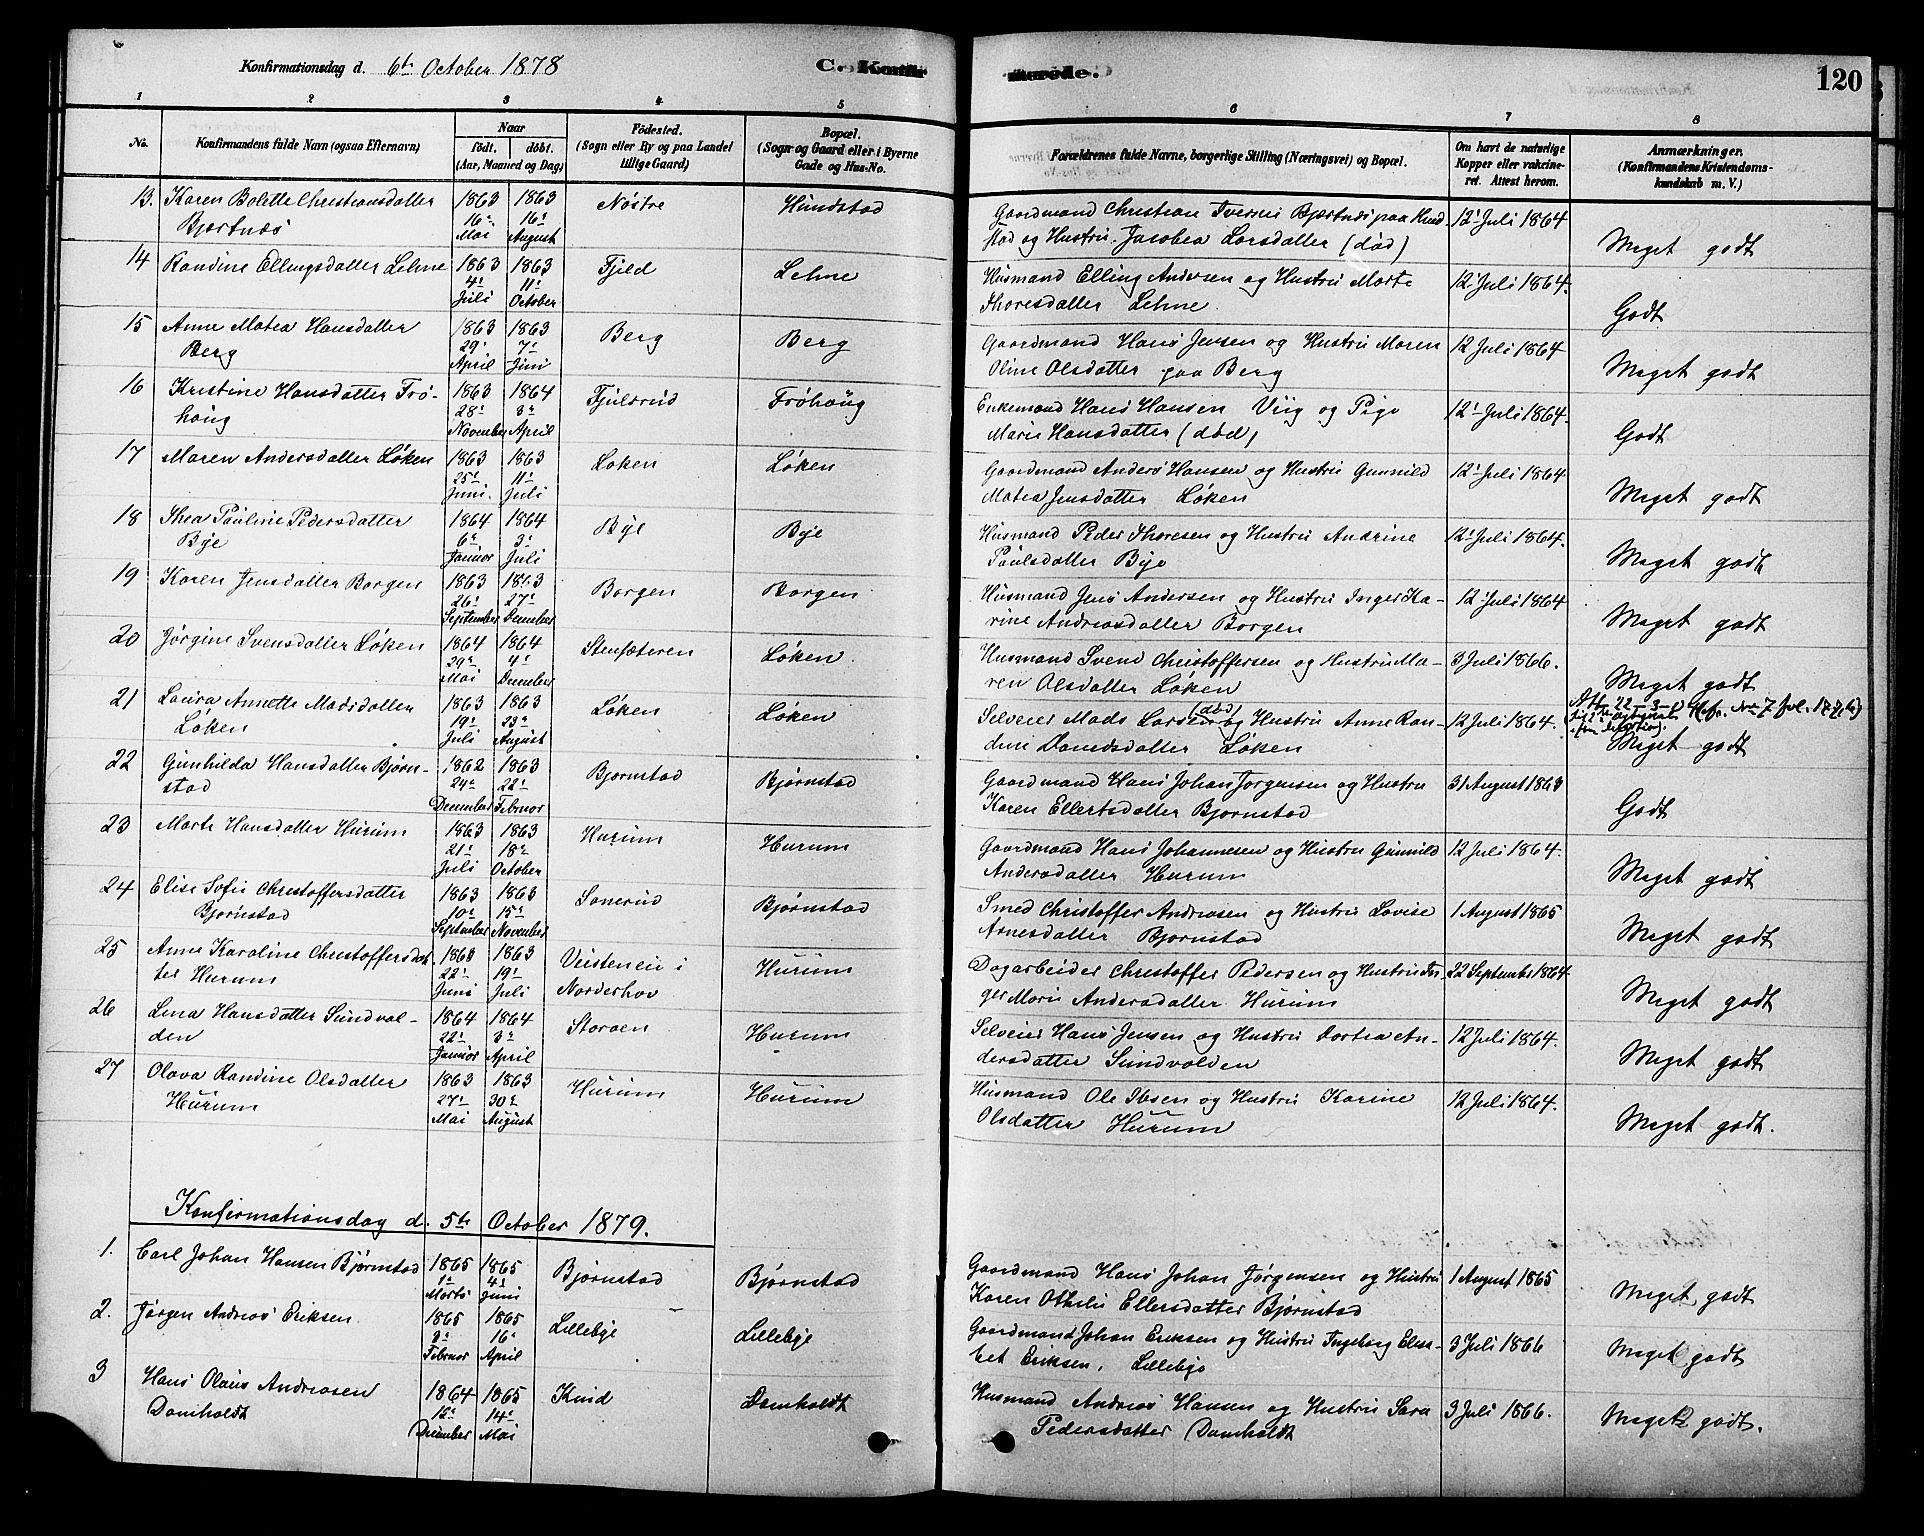 Konfirmationsdag d. 6te October 1878
C. Konfirmerede.
120
1 2 3 4 5 6 7 8
No.
Konfirmandens fulde Navn (ogsaa Efternavn)
Naar
födt. döbt.
(Aar, Maaned og Dag)
Födested.
(Sogn eller By og paa Landet
tillige Gaard)
Bopæl.
(Sogn og Gaard eller i Byerne
Gade og Hus-No.
Forældrenes fulde Navne, borgerlige Stilling (Næringsvei) og Bopæl.
Om havt de naturlige
Kopper eller vakcine-
ret. Attest herom.
Anmærkninger.
(Konfirmandens Kristendoms-
kundskab m. V.)
13. Karen Bolette Christiansdatter 1863 1863 Nöstre Hundstad Gaardmand Christian Iversen Bjertnæs paa Hund- 12' Juli 1864
Bjertnæs 16de 16' stad og Hustru Jacobea Larsdatter (død) Meget godt
Mai August
14 Randine Ellingsdatter Lehne 1863 1863 Fjeld Lehne Husmand Elling Andersen og Hustru Marte 12' Juli 1864.
4' 11' Thoresdatter Lehne Godt
Juli October
15 Anne Matea Hansdatter 1863 1863 Berg Berg Gaardmand Hans Jensen og Hustru Maren 12 Juli 1864
Berg 29' 7' Oline Olsdatter paa Berg Meget godt
April Juni
16 Kristine Hansdatter Frö- 1863 1864 Fjulsrud Fröhoug Enkemand Hans Hansen Viig og Pige 12' Juli 1864.
houg 28' 3de Marie Hansdatter (død) Godt
November April
17 Maren Andersdatter Løken 1863 1863 Løken Løken Gaardmand Anders Hansen og Hustru Gunnild 12' Juli 1864
25' 11' Matea Jensdatter Løken Meget godt
Juni. Juli
18 Thea Pauline Pedersdatter 1864 1864 Bye Bye Husmand Peder Thoresen og Hustru Andrine 12' Juli 1864.
Bye 6te 3' Paulsdatter Bye Meget godt
Januar Juli
19 Karen Jensdatter Borgen 1863 1863 Borgen Borgen Husmand Jens Andersen og Hustru Inger Ka- 12 Juli 1864
26' 27' rine Andreasdatter Borgen Meget godt
September December
20 Jörgine Svensdatter Løken 1864 1864 Stensæteren Løken. Husmand Svend Christoffersen og Hustru Ma- 3 Juli 1866.
29de 4' ren Olsdatter Løken Meget godt
Mai December
21 Laura Annette Madsdatter 1863 1863 Løken Løken Selveier Mads Larsen (død) og Hustru Anne Ran- 12 Juli 1864.
Løken 19' 23de dine Løken Meget godt
Juli August
22 Gunhilda Hansdatter Bjørn- 1862 1863 Bjørnstad Bjørnstad Gaardmand Hans Johan Jørgensen og Hustru 31 August 1863
stad 24de 22' Karen Ellertsdatter Bjørnstad Godt
December Februar
23 Marte Hansdatter Hurum 1863 1863 Hurum Hurum Gaardmand Hans Johannesen og Hustru Gunnild 12 Juli 1864.
21' 18de Andersdatter Hurum Meget godt
Juli October
24 Elise Sofie Christoffersdatter 1863 1863 Sonerud Bjørnstad Smed Christoffer Andreasen og Hustru Lovise 1 August 1865
Bjørnstad 10de 15' Arnesdatter Bjørnstad Meget godt
September November
25 Anne Karoline Christoffersdat- 1863 1863 Veisteneie i Hurum Dagarbeider Christoffer Pedersen og Hustru In- 22 September 1864
ter Hurum 22' 19' Norderhov ger Marie Andersdatter Hurum Meget godt
Juni Juli
26 Lena Hansdatter Sundvol- 1864 1864 Storøen Hurum Selveier Hans Jensen og Hustru Dortea An- 12 Juli 1864.
den 22' 3de dersdatter Sundvolden Meget godt
Januar April
27 Olava Randine Olsdatter 1863 1863 Hurum Hurum Husmand Ole Ibsen og Hustru Karine 12 Juli 1864.
Hurum 27' 30te Olsdatter Hurum Meget godt.
Mai August
Konfirmationsdag d. 5te October 1879.
1. Carl Johan Hansen Bjørnstad 1865 1865 Bjørnstad Bjørnstad Gaardmand Hans Johan Jørgensen og Hustru 1 August 1865
1' 4' Karen Othelie Ellersdatter Bjørnstad Meget godt
Marts Juni
2. Jørgen Andreas Eriksen 1865 1865 Lillebye Lillebye Gaardmand Johan Eriksen og Hustru Ingeborg Elisa- 3 Juli 1866
16' bet Eriksen. Lillebye Meget godt
Februar April
3 Hans Olaus Andreasen 1864 1865 Domholdt Husmand Andreas Hansen og Hustru Sara 3 Juli 1866.
Domholdt 12' 14' Pedersdatter Domholdt Meget godt.
December Mai